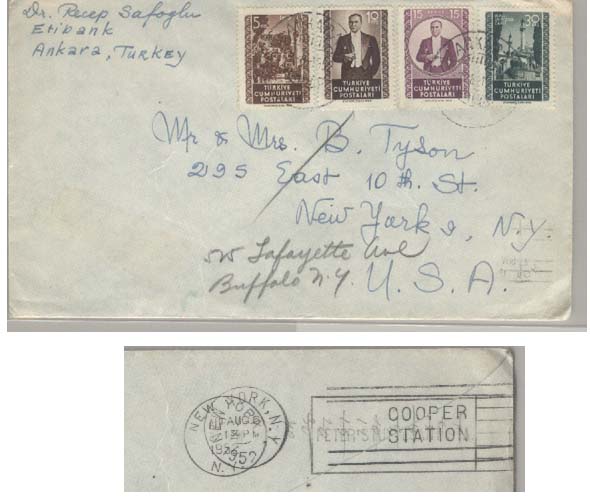 Dr. Recep Safoglu
Etibank
Ankara, TURKEY
5 10 15 15 30
TÜRKİYE CUMHURİYETİ POSTALARI
TÜRKİYE CUMHURİYETİ POSTALARI
TÜRKİYE CUMHURİYETİ POSTALARI
TÜRKİYE CUMHURİYETİ POSTALARI
Mr & Mrs. B. Tyson
295 East 10 th. St.
New York 9, N.Y.
U.S.A.
Lafayette Ave
Buffalo N.Y.
NEW YORK, N.Y.
AUG
PM
1952
N.Y.
COOPER
STATION